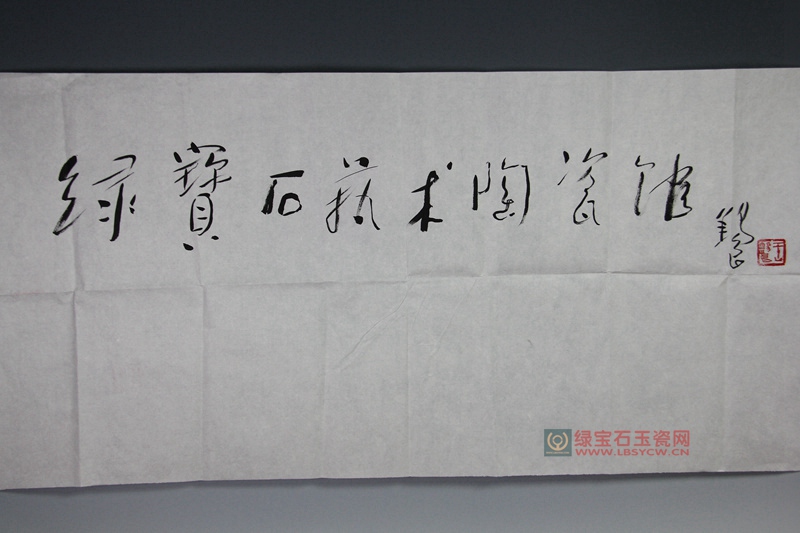 绿寶石藝术陶瓷馆
绿宝石玉瓷网
WWW.LBSYCW.CN